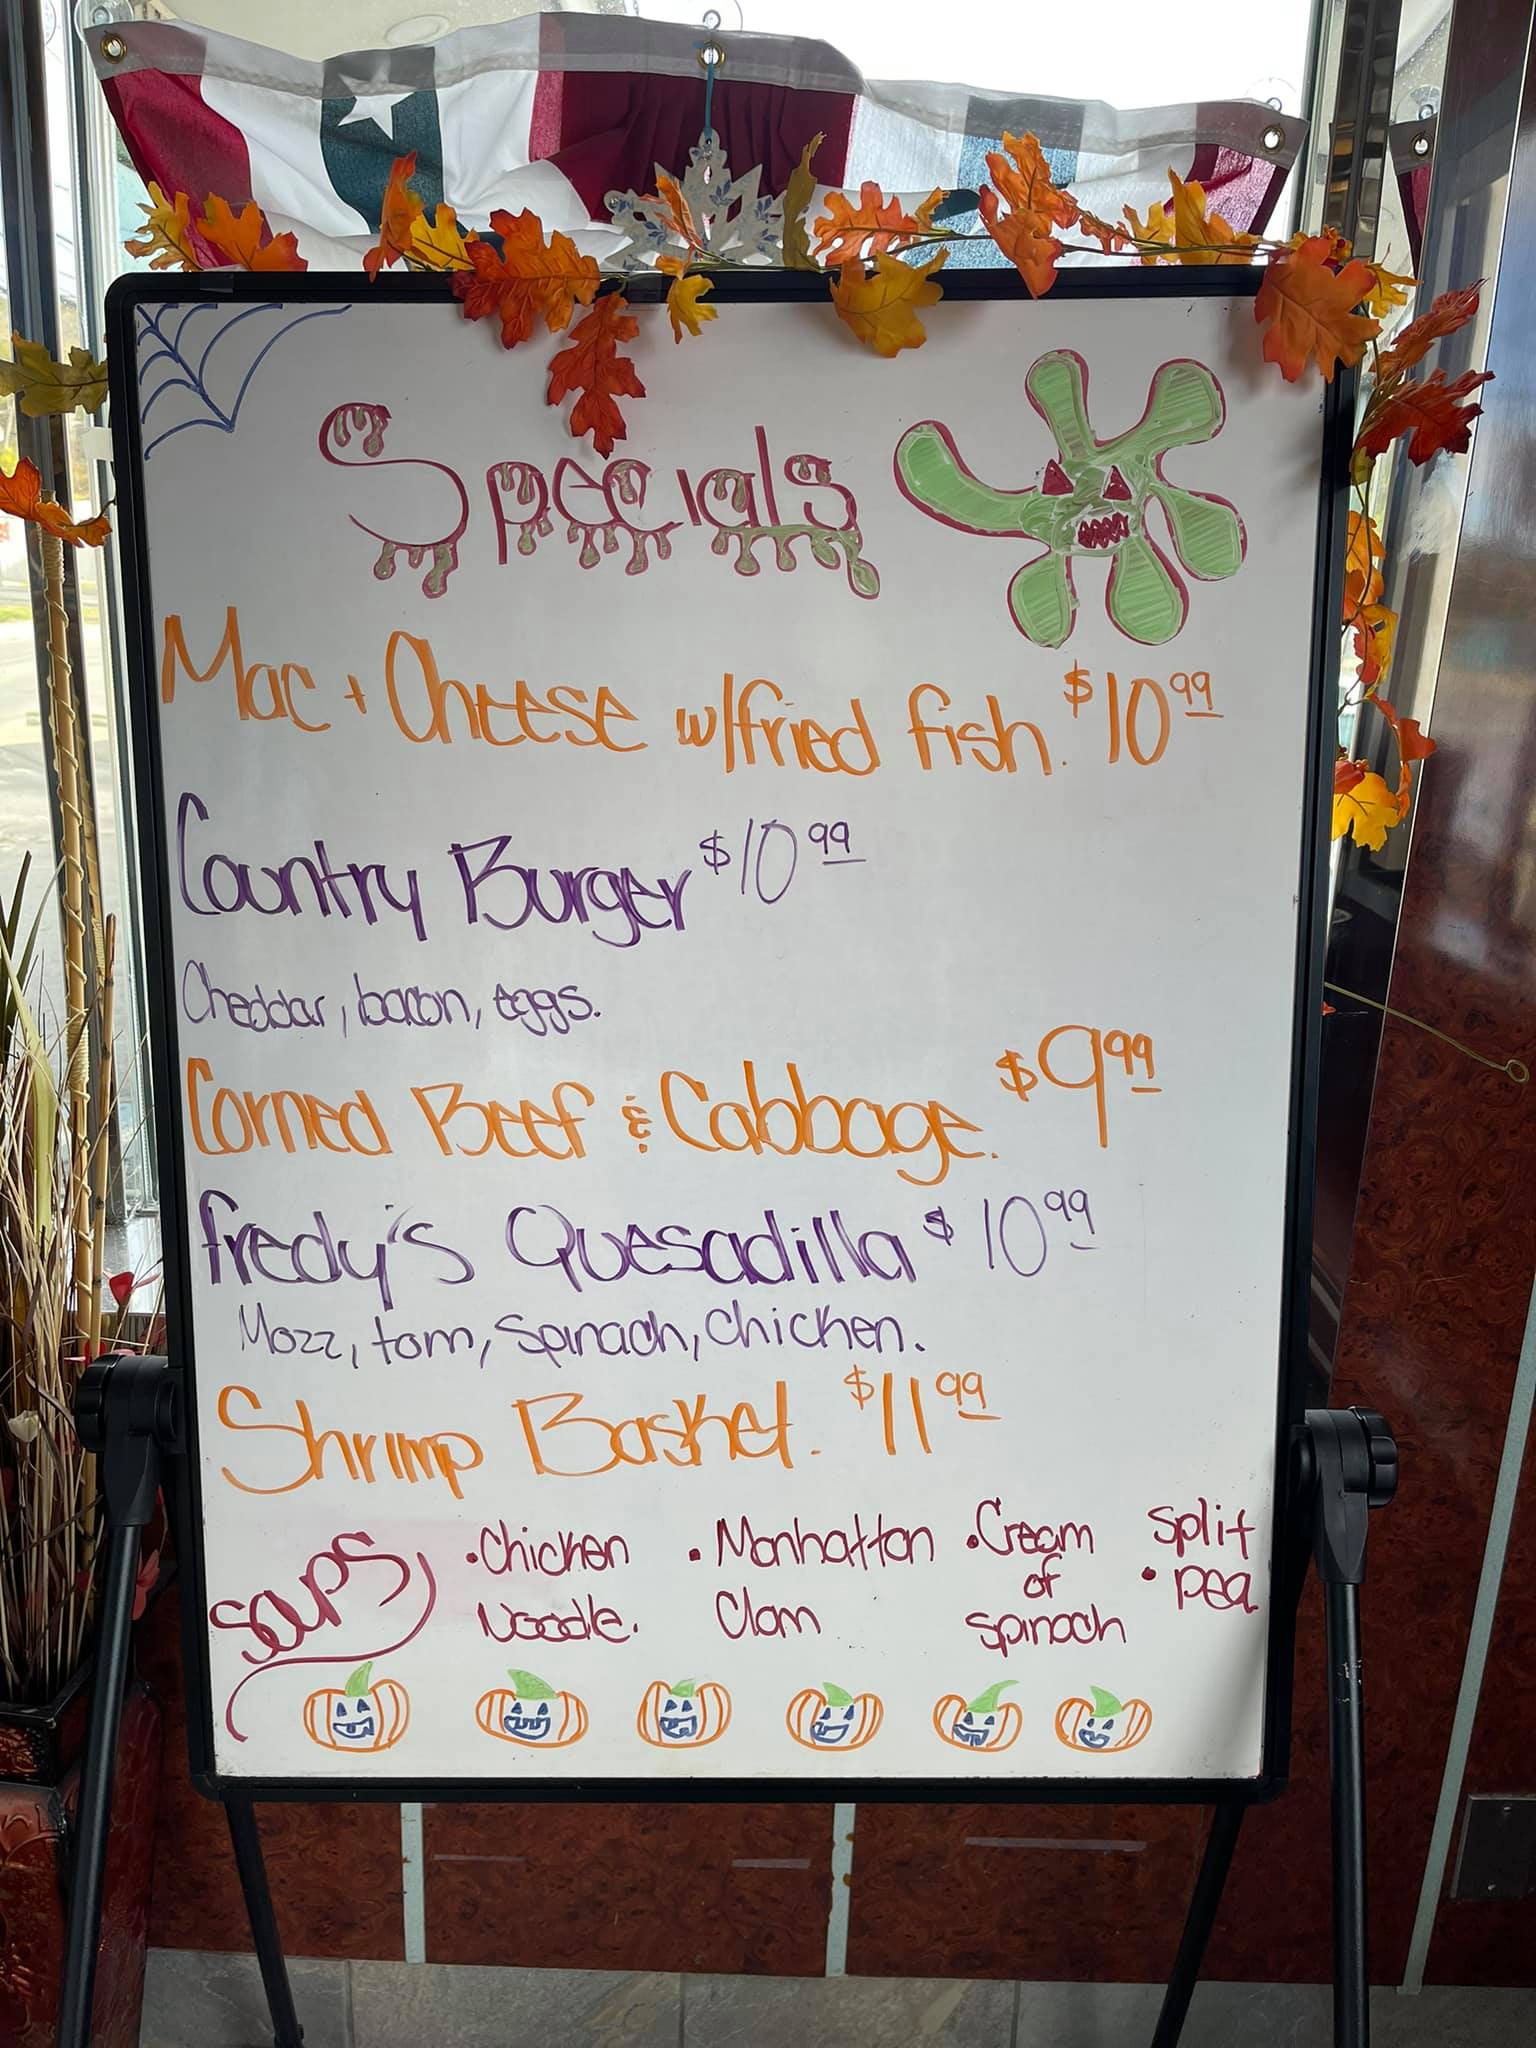 Specials
Mac + Cheese w/fried fish. $10.99
Country Burger $10.99
Cheddar, bacon, eggs.
Corned Beef & Cabbage. $9.99
fredy's Quesadilla $10.99
Mozz, tom, Spinach, Chicken.
Shrimp Basket. $11.99
Soups
• Chicken Noodle.
• Manhattan Clam
• Cream of spinach
• Split pea